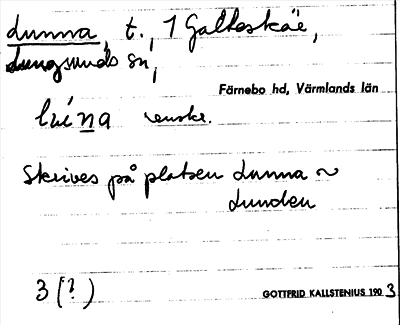 Lunna, t., 1 Galtaskäe,
Lungsunds sn,
Färnebo hd, Värmlands län
Skrives på platsen Lunna ~
Lunden
3 (?)
GOTTFRID KALLSTENIUS 1903